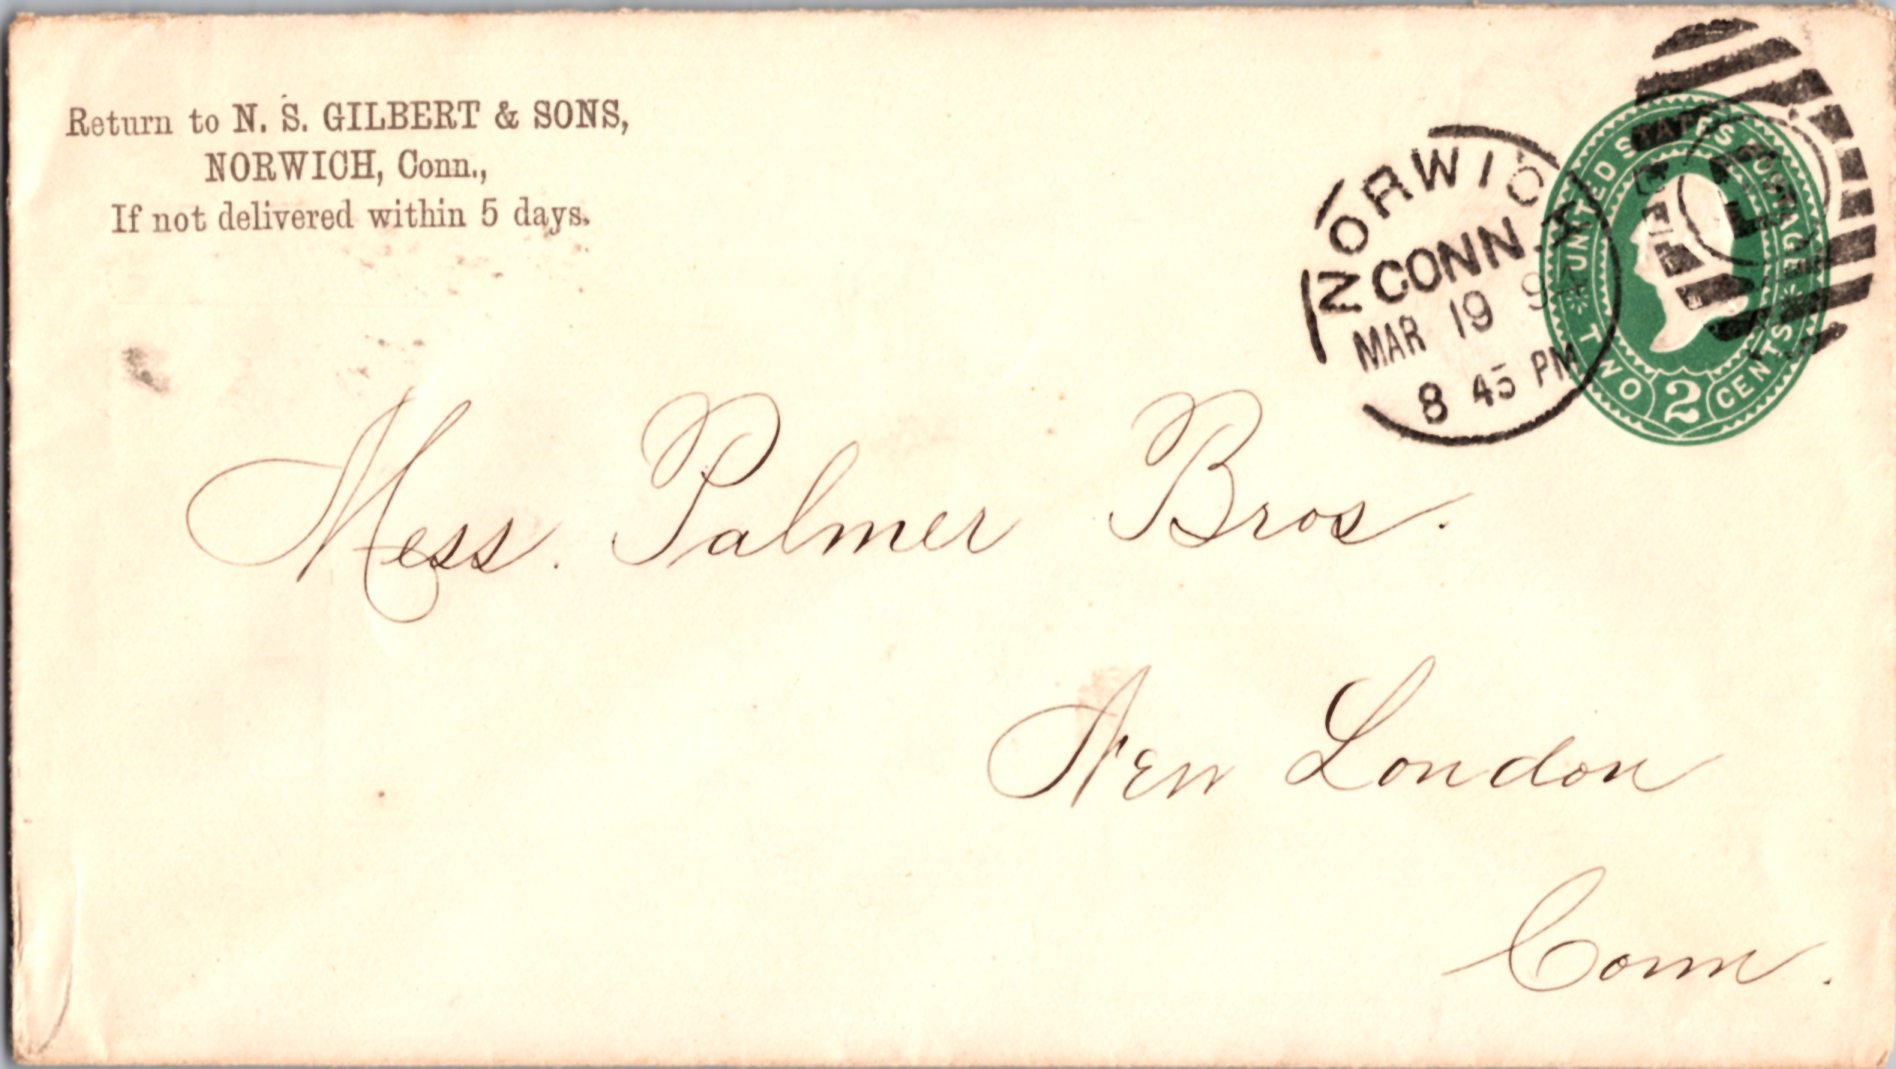 Return to N. S. GILBERT & SONS,
NORWICH, Conn.,
If not delivered within 5 days.
NORWICH
CONN.
MAR 19
8 45 PM
UNITED STATES POSTAGE
TWO 2 CENTS
1
Mess. Palmer Bros.
New London
Conn.